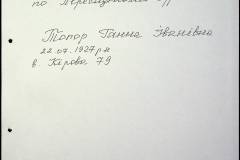 по
Топор Ганна Іванівна
22.07.1927 р н
в. Кірова, 79